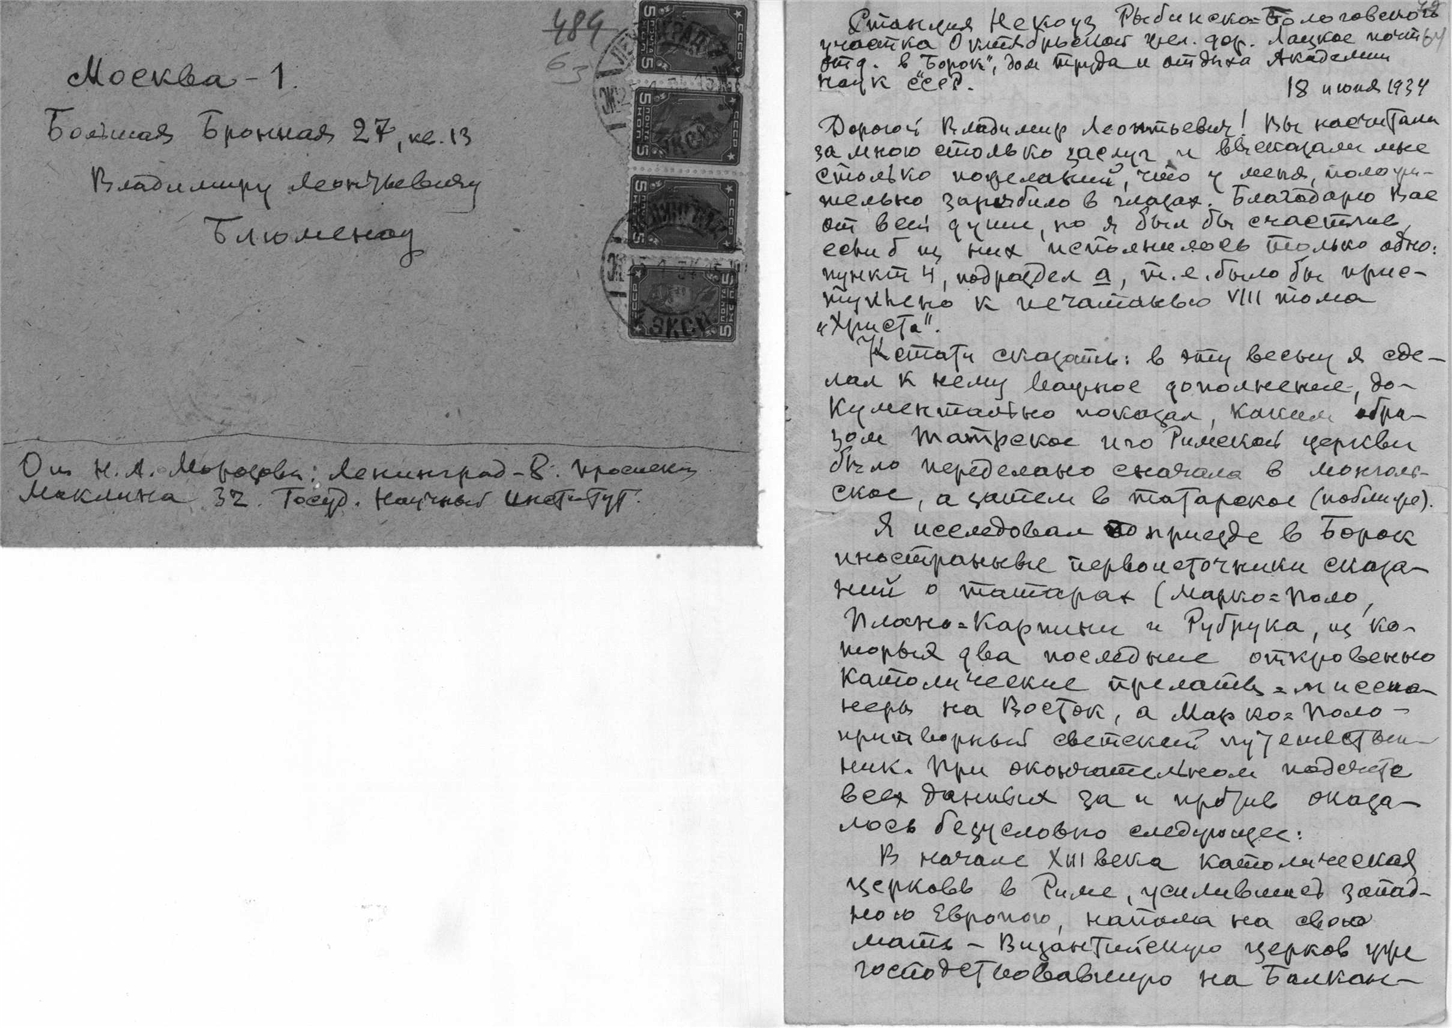 484
63
Москва - 1.
Большая Бронная 27, кв. 13
Владимиру Леонтьевичу
Блюменау
От Н. А. Морозова: Ленинград-8. проспект
Маклина 32. Госуд. Научный Институт.
СССР
5 коп 5
почта
64
Станция Некоуз Рыбинско=Бологовского
участка Октябрьской жел. дор. Лацкое почт.
отд. в "Борок", дом труда и отдыха Академии
наук СССР.
18 июня 1934
Дорогой Владимир Леонтьевич! Вы насчитали
за мною столько заслуг и высказали мне
столько пожеланий, что у меня, положи-
тельно зарябило в глазах. Благодарю Вас
от всей души, но я был бы счастлив,
если б из них исполнилось только одно:
пункт 4, подраздел а, т.е. было бы прис-
туплено к печатанью VIII тома
"Христа".
Кстати сказать: в эту весну я сде-
лал к нему важное дополнение, до-
кументально показал, каким обра-
зом Татрское иго Римской церкви
было переделано сначала в монголь-
ское, а затем в татарское (поближе).
Я исследовал по приезде в Борок
иностранные первоисточники сказа-
ний о татарах (Марко=Поло,
Плано=Карпини и Рубрука, из ко-
торых два последние откровенно
католические прелаты=миссио-
неры на Восток, а Марко=Поло-
притворный светский путешествен-
ник. При окончательном подсчете
всех данных за и против оказа-
лось безусловно следующее:
В начале XIII века католическая
церковь в Риме, усилившись запад-
ною Европою, напала на свою
мать - Византийскую церковь уже
господствовавшую на Балкан-